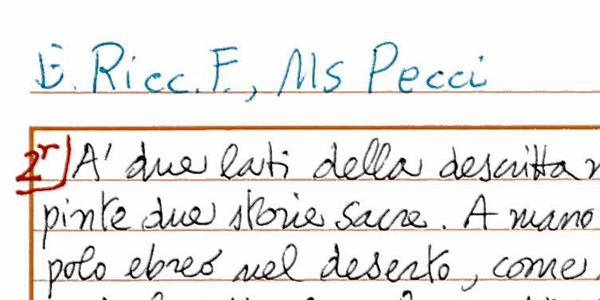 E. Ricc. F., Ms Pecci
2r) A' due lati della descritta
pinte due storie sacre. A mano
polo ebreo nel deserto, come